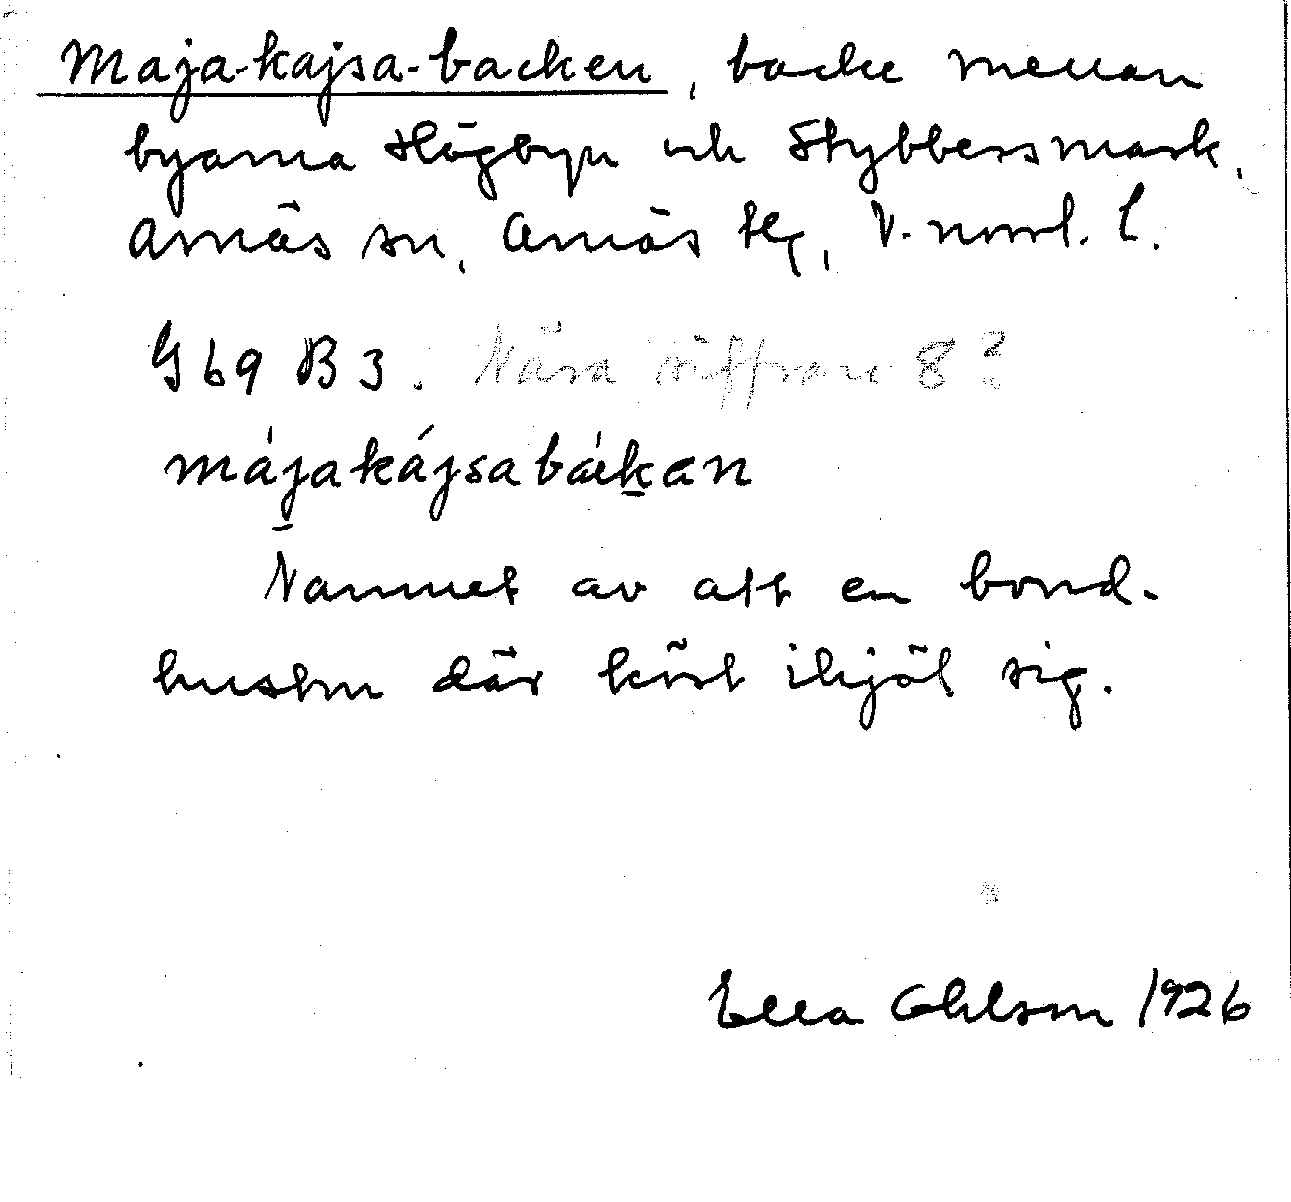 Maja-kajsa-backen, backe mellan
byarna Högbyn och Stybbersmark,
Arnäs sn, Arnäs tg, V.-norrl. l.
G 69 B 3. Nära siffran 8?
májakájsabák̲an
Namnet av att en bond-
hustru där kört ihjäl sig.
Ella Ohlson 1926